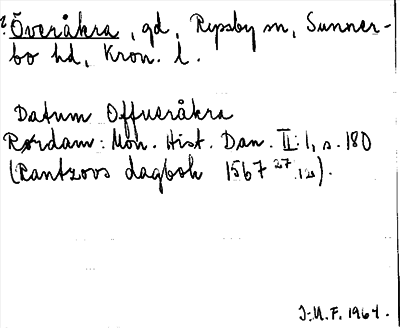 Överåkra, gd, Rypsby sn, Sunner-
bo hd, Kron. l.
Datum Offueråkra
Rørdam: Mon. Hist. Dan. II:1, s. 180
(Rantzovs dagbok 1567 27/12).
J:A.F. 1964.